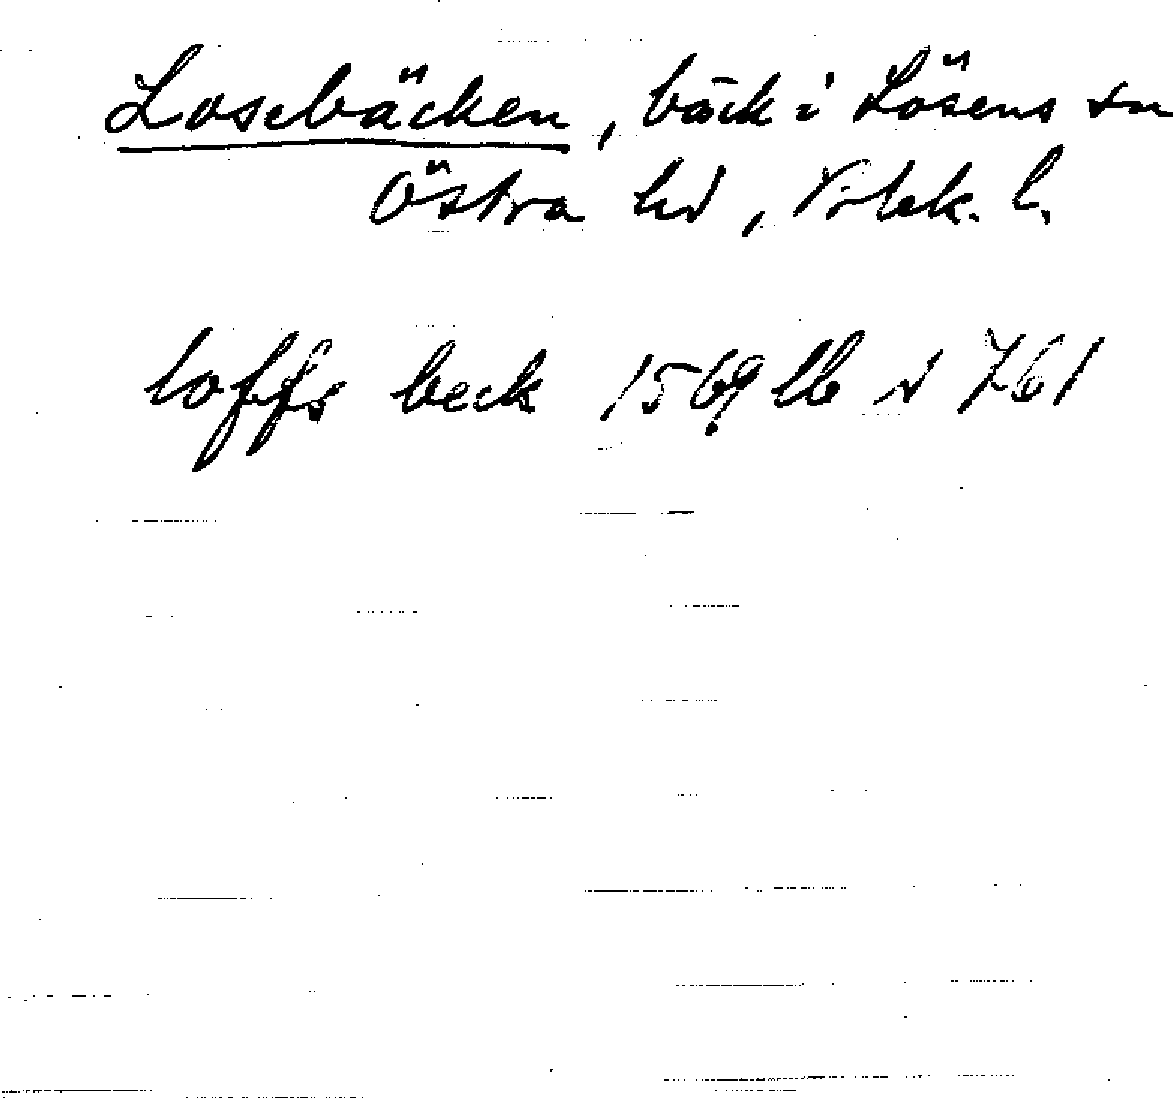 Losebäcken, bäck i Lösens sn
Östra hd, Blek. l.
loffs beck 1569 lb s 761